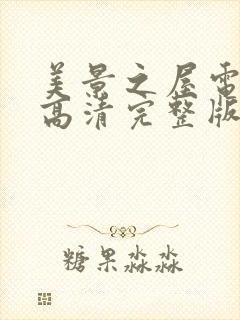 美景之屋电
高清完整版
糖果淼淼